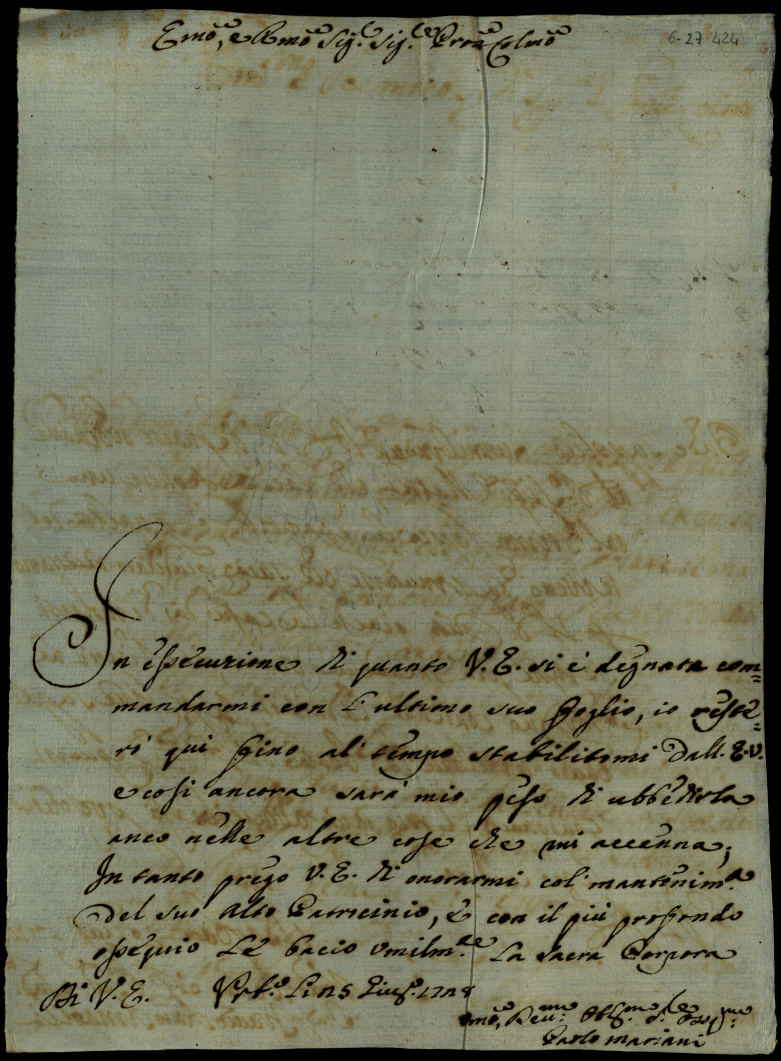 Emo͞, e Rmo͞ Sig.r Sig.re Pron͞ Colmo͞
6-27 424
In essecuzione di quanto V.E. si è degnata com=
mandarmi con l'ultimo suo foglio, io reste=
rò qui fino al tempo stabilitomi dall. E.V.
e cosi ancora sarà mio peso di ubbedirla
anco nelle altre cose che mi accenna;
In tanto prego V.E. di onorarmi col' mantenim.to
del suo alto Patricinio, e con il più profondo
ossequio Le bacio umilm.te La sacra Porpora
Di V.E. Urb.o Li 25 Giug.o 1728
Emo͞, Rev.mo
Carlo Mariani